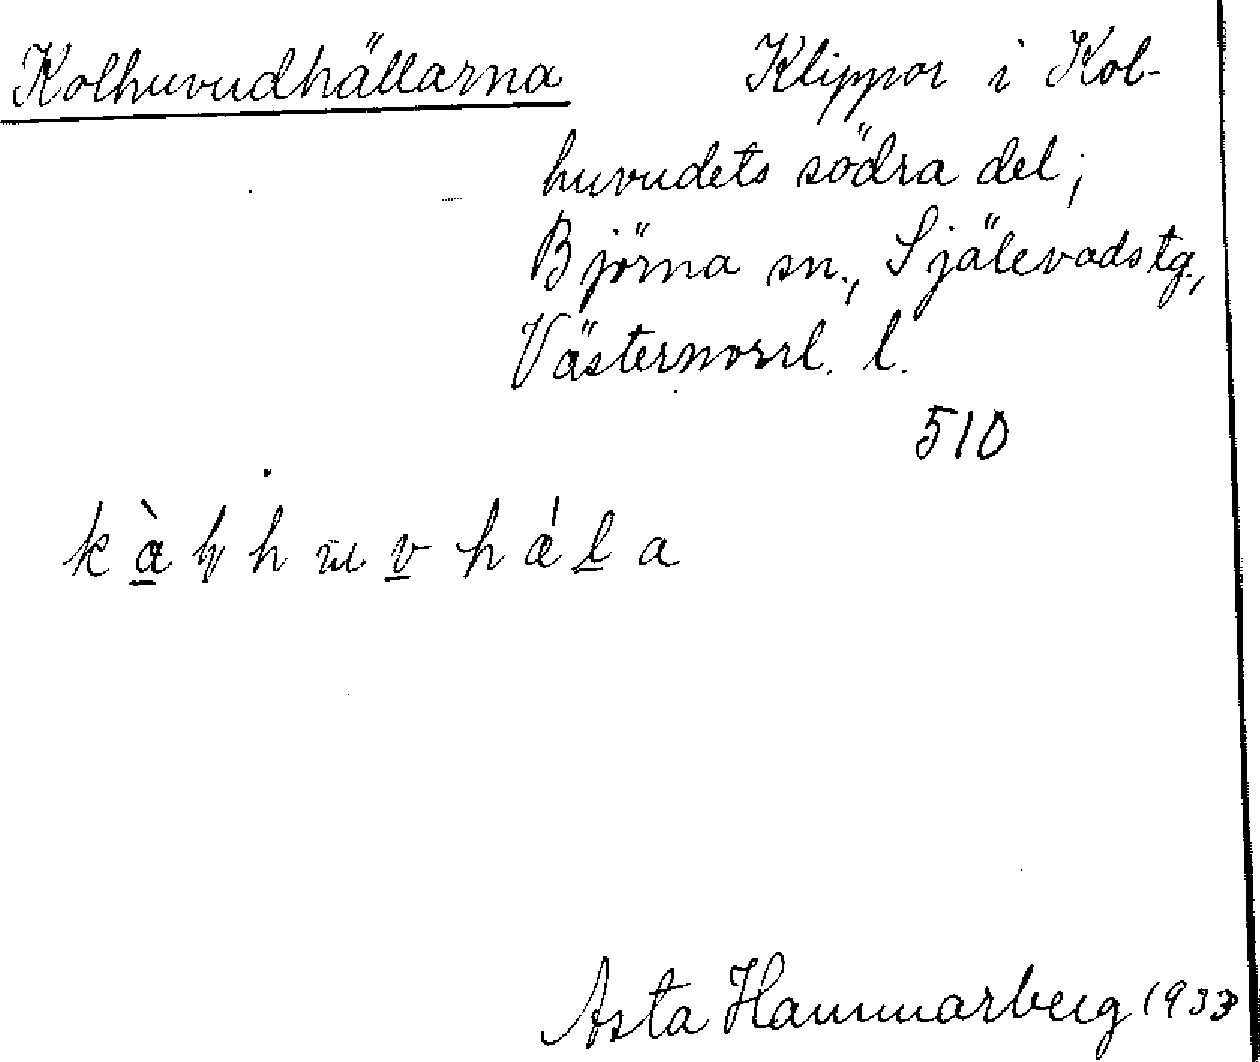 Kolhuvudhällarna Klippor i Kol-
huvudets södra del;
Björna sn., Själevads tg.,
Västernorrl. l.
510
Asta Hammarberg 1933